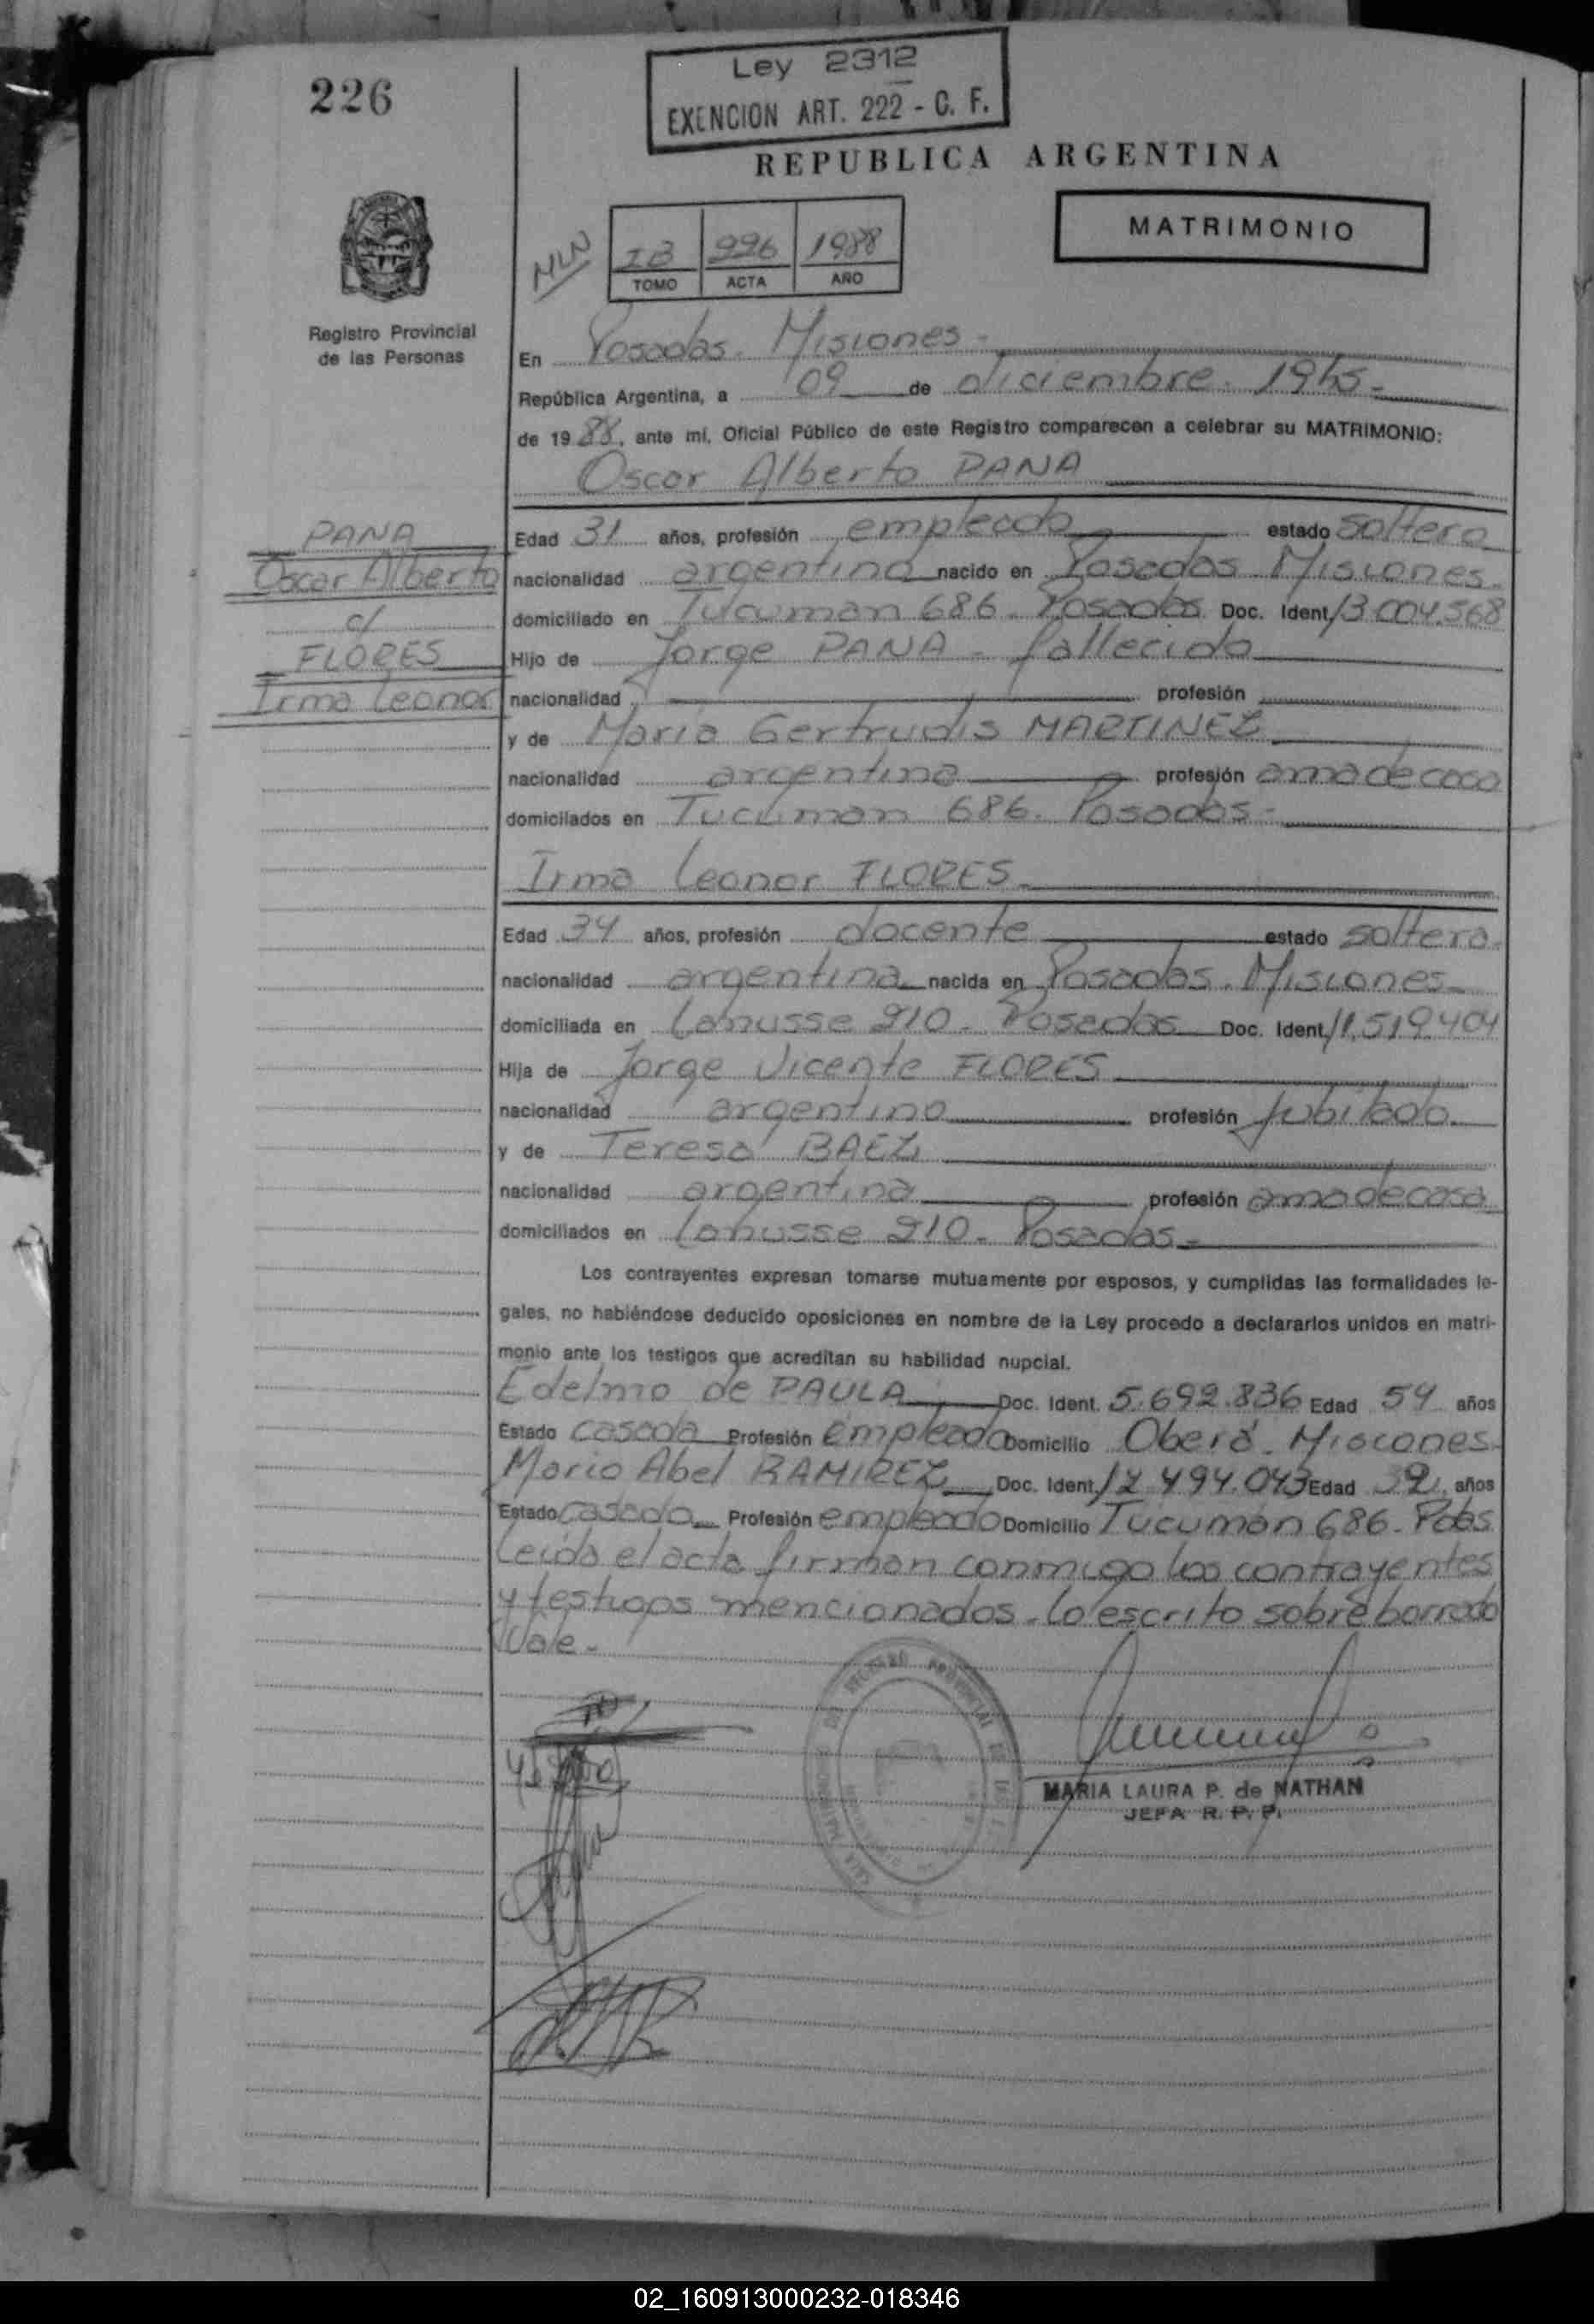 226
Ley 2312
EXENCION ART. 222 - C. F.
REPUBLICA ARGENTINA
MATRIMONIO
226 1988
TOMO ACTA AÑO
Registro Provincial
de las Personas
En Posadas. Misiones -
República Argentina, a 09 de diciembre. 19hs-
de 1988, ante mí, Oficial Público de este Registro comparecen a celebrar su MATRIMONIO:
Oscar Alberto PANA
PANA
Oscar Alberto
c/
FLORES
Irma Leonor
Edad 31 años, profesión empleado estado soltero
nacionalidad argentino nacido en Posadas Misiones.
domiciliado en Tucuman 686. Posadas Doc. Ident. 13.004.568
Hijo de Jorge PANA - fallecido
nacionalidad profesión
y de Maria Gertrudis MARTINEZ
nacionalidad argentina profesión ama de casa
domicilados en Tucuman 686. Posadas-
Irma Leonor FLORES
Edad 34 años, profesión docente estado soltera.
nacionalidad argentina nacida en Posadas. Misiones
domiciliada en Lanusse 910. Posadas Doc. Ident. 11.519.404
Hija de Jorge Vicente FLORES
nacionalidad argentino profesión jubilado.
y de Teresa BAEZ
nacionalidad argentina profesión ama de casa
domiciliados en Lanusse 910. Posadas-
Los contrayentes expresan tomarse mutuamente por esposos, y cumplidas las formalidades le-
gales, no habiéndose deducido oposiciones en nombre de la Ley procedo a declararlos unidos en matri-
monio ante los testigos que acreditan su habilidad nupcial.
Edelmo de PAULA Doc. Ident. 5.692.836 Edad 54 años
Estado casado Profesión empleado Domicilio Oberá. Misiones.
Mario Abel RAMIREZ Doc. Ident. 494.043 Edad años
Estado casado Profesión empleado Domicilio Tucumán 686. Pdas
Leída el acta firman conmigo los contrayentes
y testigos mencionados. Lo escrito sobre borrado
Vale-
MARIA LAURA P. de NATHAN
JEFA R. P. P.
02_160913000232-018346